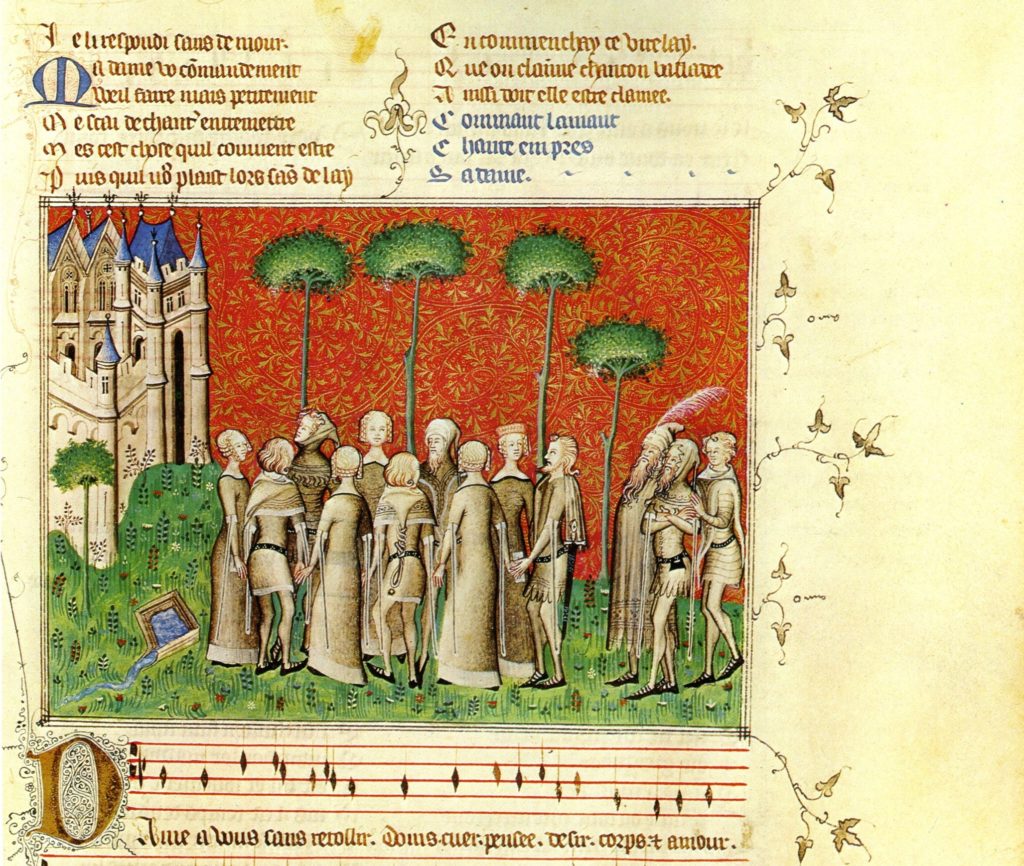 Je li respondi sans demour.
Ma dame vo cõmandement
Weil faire mais petitement
Me scai de chant' entremettre
Mes cest chose quil couvient estre
Puis quil voꝰ plaist lors sãs delay
En commenchay ce virelay.
Que on claimme chancon balladee
Aussi doit elle estre clamee.
Commant lamant
Chante empres
Sa dame.
Dame a vous sans retollir. Doins. cuer. pensee. desir. corps. ⁊ amour.